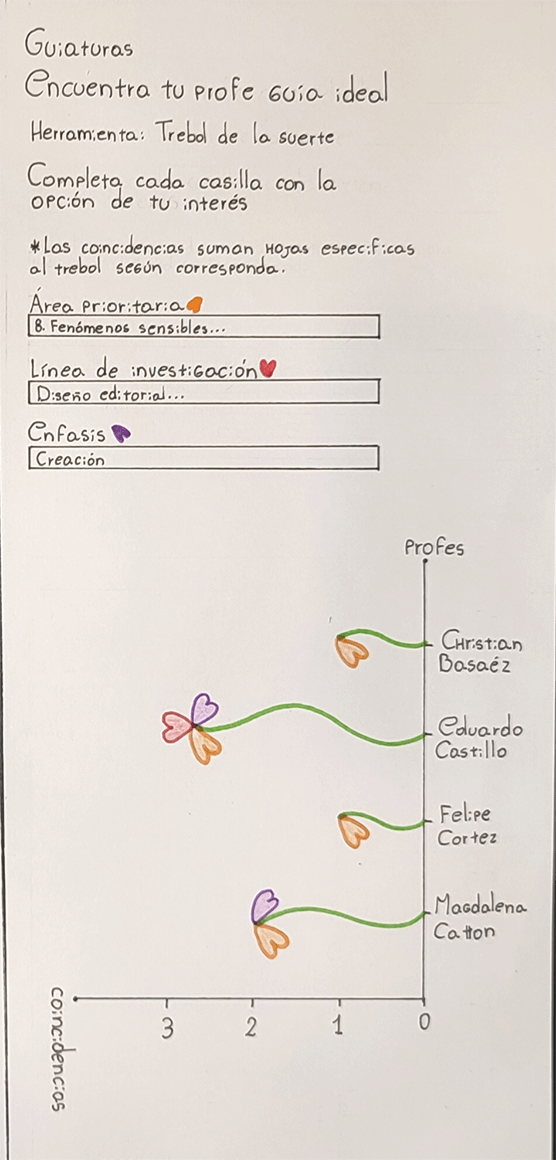 Guiaturas
Encuentra tu profe guía ideal
Herramienta: Trebol de la suerte
Completa cada casilla con la
opción de tu interés
*Las coincidencias suman hojas especificas
al trebol según corresponda.
Área prioritaria
8. Fenómenos sensibles...
Línea de investigación
Diseño editorial...
Enfasis
Creación
Profes
Christian
Basaéz
Eduardo
Castillo
Felipe
Cortez
Magdalena
Catton
coincidencias
3 2 1 0